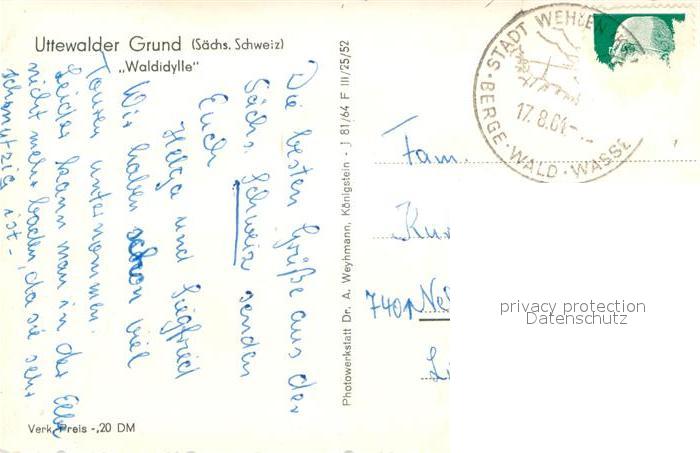 Uttewalder Grund (Sächs. Schweiz)
„Waldidylle"
Die besten Grüße aus der
Sächs. Schweiz senden
Euch
Helga und Siegfried
Wir haben schon viel
Touren unternommen.
Leider kann man in der Elbe
nicht mehr baden, da sie sehr
schmutzig ist –
Verk. Preis -,20 DM
Photowerkstatt Dr. A. Weyhmann, Königstein - J 81/64 F III/25/52
STADT WEHLEN
17.8.64
BERGE · WALD · WASSE
Fam.
Kur
7401 Ne
Li
privacy protection
Datenschutz